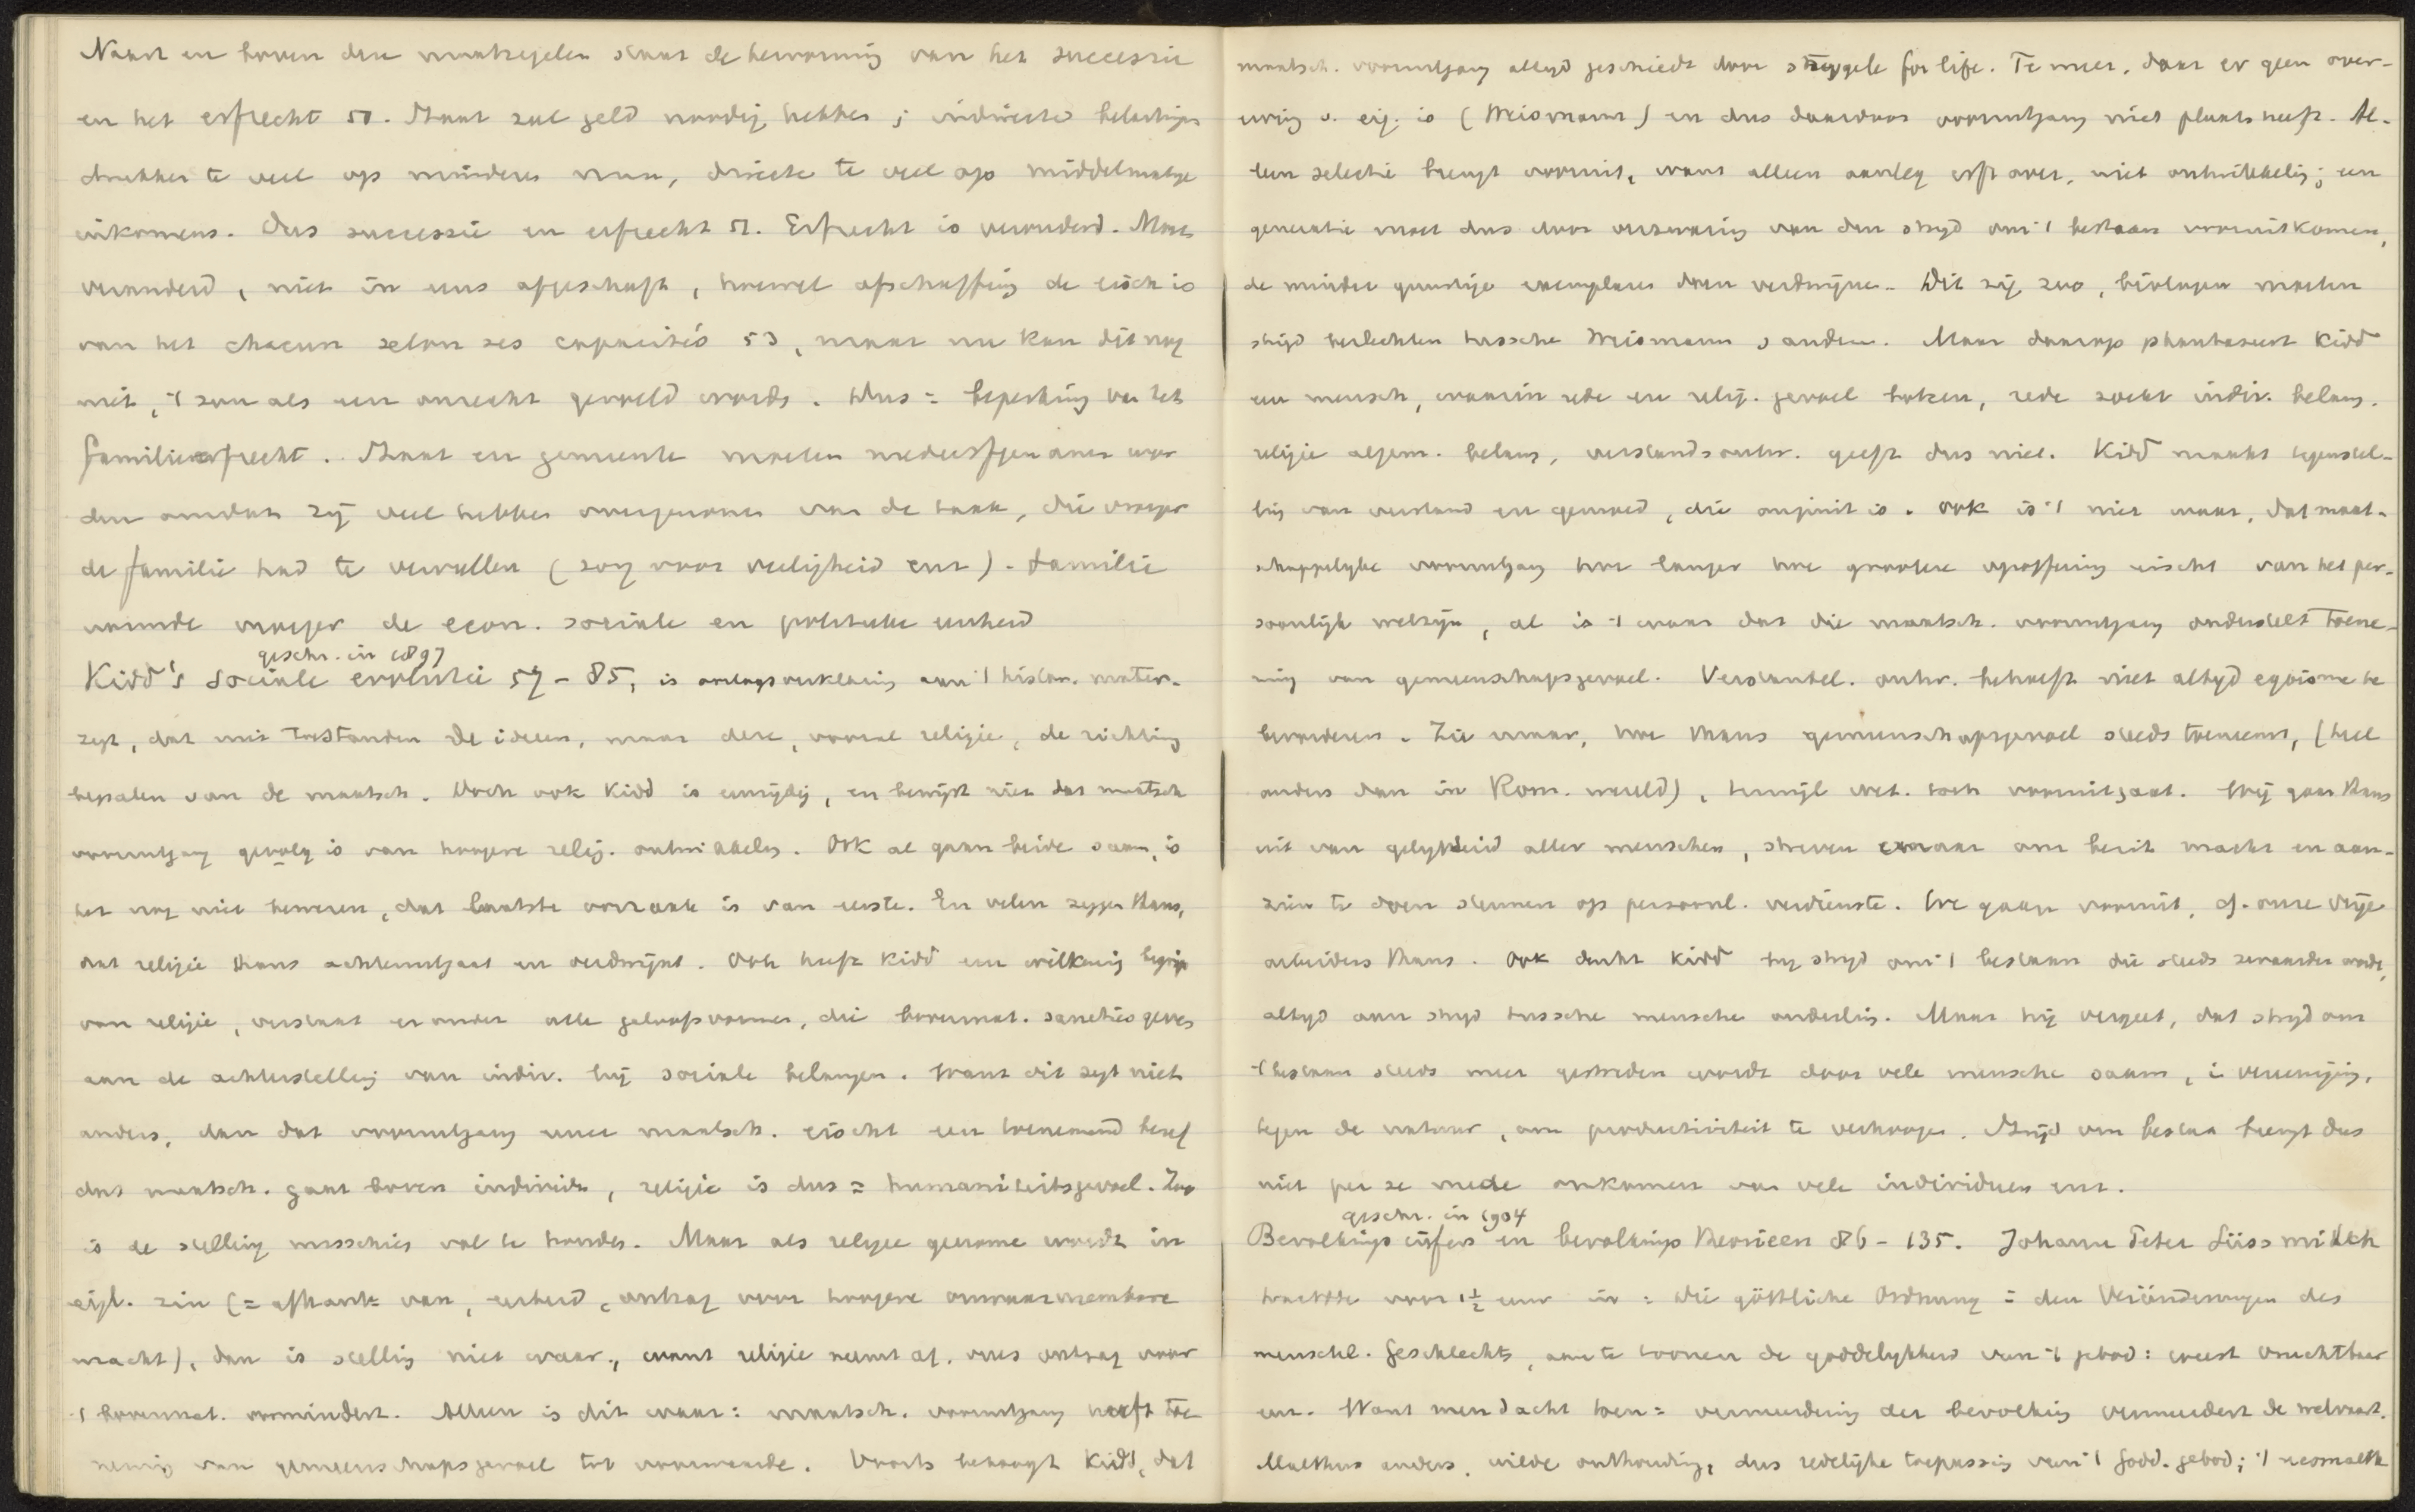 Naast en boven deze maatregelen staat de hervorming van het successie
en het erfrecht 50. Staat zal geld noodig hebben; indirecte belastingen
drukken te veel op minderen man, directe te veel op middelmatige
inkomens. Dus successie en erfrecht 51. Erfrecht is veranderd. Moet
veranderd, niet in eens afgeschaft, hoewel afschaffing de eisch is
van het chacun selon ses capacités 53, maar nu kan dit nog
niet, 't zou als een onrecht gevoeld worden. Dus = beperking van het
familieerfrecht. Staat en gemeente moeten medeerfgenamen wor
den omdat zij veel hebben overgenomen van de taak, die vroeger
de familie had te vervullen (zorg voor veiligheid enz) - familie
vormde vroeger de econ. sociale en politieke eenheid
geschr. in 1897
Kidd's sociale evolutie 57-85, is oorlogsverklaring aan 't histor. mater.
zegt, dat niet toestanden de ideeen, maar deze, vooral religie, de richting
bepalen van de maatsch. Doch ook Kidd is eenzijdig, en bewijst niet dat maatsch
vooruitgang gevolg is van hoogere relig. ontwikkeling. Ook al gaan beide saam, is
het nog niet bewezen, dat laatste oorzaak is van eerste. En velen zeggen thans,
dat religie thans achteruitgaat en verdwijnt. Ook heeft Kidd een willkeurig begrip
van religie, verstaat eronder alle geloofsvormen, die bovennat. sanctie geven
aan de achterstelling van indiv. bij sociale belangen. Want dit zegt niets
anders, dan dat vooruitgang eener maatsch. eischt een toenemend besef
dat maatsch. gaat boven individu, religie is dus = humaniteitsgevoel. Zoo
is de stelling misschien vol te houden. Maar als religie genomen wordt in
eigl. zin (= afhank= van, eerbied, ontzag voor hoogere onwaarneembare
macht), dan is stelling niet waar, want religie neemt af, vrees ontzag voor
't bovennat. vermindert. Alleen is dit waar: maatsch. vooruitgang heeft toe
neming van gemeenschapsgevoel tot voorwaarde. Voorts betoogt Kidd, dat
maatsch. vooruitgang altijd geschiedt door struggle for life. Te meer, daar er geen over-
erving v. eig. is (Weismann) en dus daardoor vooruitgang niet plaats heeft. Al-
leen selectie brengt vooruit, want alleen aanleg erft over, niet ontwikkeling; een
generatie moet dus door verzwaring van den strijd om 't bestaan vooruitkomen,
de minder gunstige exemplaren doen verdwijnen. Dit zij zoo, biologen moeten
strijd beslechten tusschen Weismann & anderen. Maar daarop phantaseert Kidd
een mensch, waarin rede en relig. gevoel botsen, rede zoekt indiv. belang.
religie algem. belang, verstandsontw. geeft dus niet. Kidd maakt tegenstel-
ling van verstand en gemoed, die onjuist is. Ook is 't niet waar, dat maat-
schappelijke vooruitgang hoe langer hoe grootere opoffering eischt van het per-
soonlijk welzijn, al is 't waar dat die maatsch. vooruitgang onderstelt toene-
ming van gemeenschapsgevoel. Verstandel. ontw. behoeft niet altijd egoisme te
bevorderen. Zie maar, hoe thans gemeenschapsgevoel steeds toeneemt, (heel
anders dan in Rom. wereld), terwijl wet. toch vooruitgaat. Wij gaan thans
uit van gelijkheid aller menschen, streven ernaar om bezit macht en aan-
zien te doen steunen op persoonl. verdienste. We gaan vooruit, cf. onze vrije
arbeiders thans. Ook denkt Kidd bij strijd om 't bestaan die steeds zwaarder wordt,
altijd aan strijd tusschen menschen onderling. Maar hij vergeet, dat strijd om
't bestaan steeds meer gestreden wordt door vele menschen saam, in vereeniging,
tegen de natuur, om productiviteit te verhoogen. Strijd om bestaan brengt dus
niet per se mede omkomen van vele individuen enz.
geschr. in 1904
Bevolkings cijfers en bevolkings theorieen 86-135. Johann Peter Süssmilch
trachtte voor 1½ eeuw in = Die göttliche Ordnung = den Veränderungen des
menschl. Geschlechts, aan te toonen de goddelijkheid van 't gebod: weest vruchtbaar
enz. Want men dacht toen = vermeerdering der bevolking vermeerdert de welvaart.
Malthus anders, wilde onthouding, dus redelijke toepassing van 't Godd. gebod; 't neomalth